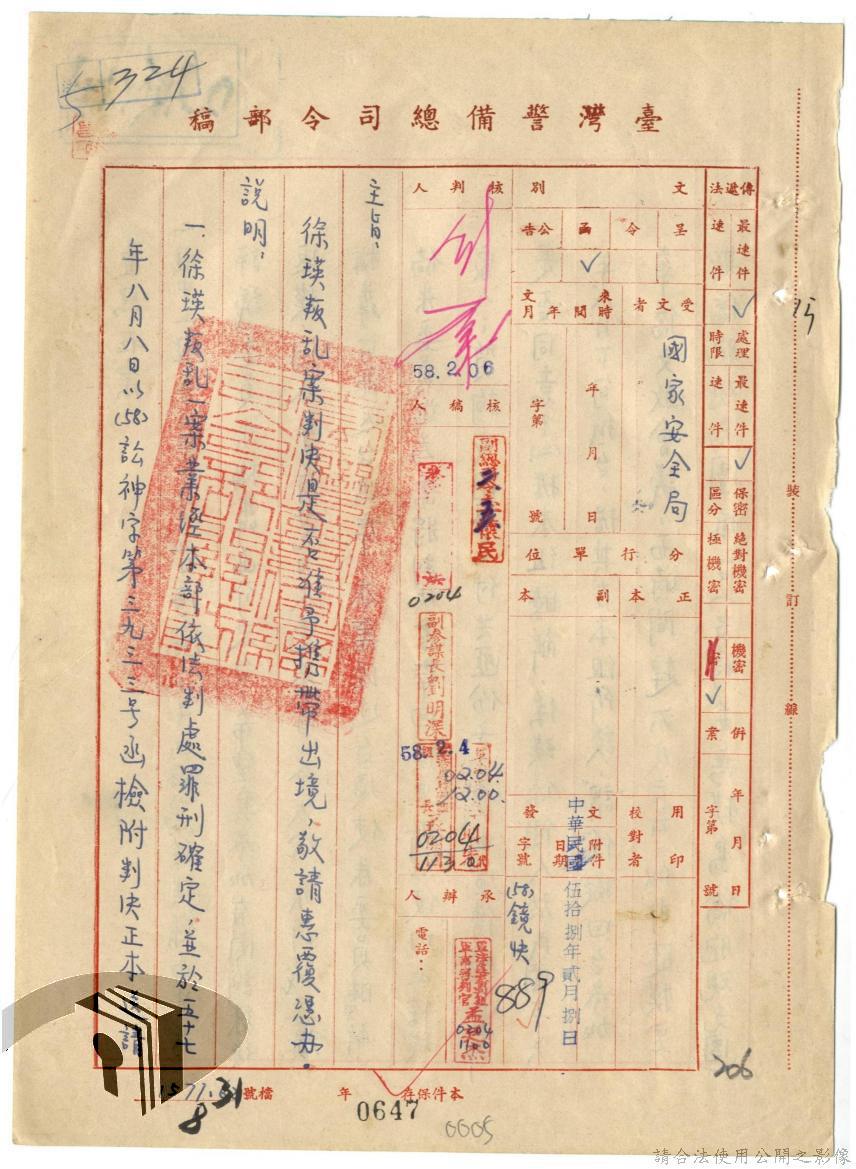 5 324
臺灣警備總司令部稿
傳遞方法
最速件
速件
處理時限
最速件
速件
保密區分
絕對機密
極機密
機密
密
併
案
年
月
日
字第
號
文別
呈
令
函
公告
受文者
國家安全局
來文時間
年
月
日
字第
號
分行單位
正本
副本
用印
校對者
發文
附件
日期
字號
中華民國伍拾捌年貳月捌日
(58)鏡快
889
核判人
58.2.06
核稿人
0204
副參謀長劉明深
58.2.4
0204
1200
0204
1130
承辦人
電話：
0204
1100
主旨：
徐瑛叛乱案判決是否准予携帶出境，敬請惠覆憑办。
說明：
一、徐瑛叛乱一案業經本部依法判處罪刑確定，並於五十七
年八月八日以(58)訟神字第三九三三号函檢附判決正本
請
裝
訂
線
15
206
本件保存
年
檔號
1571.6
31
8
0647
0005
請合法使用公開之影像